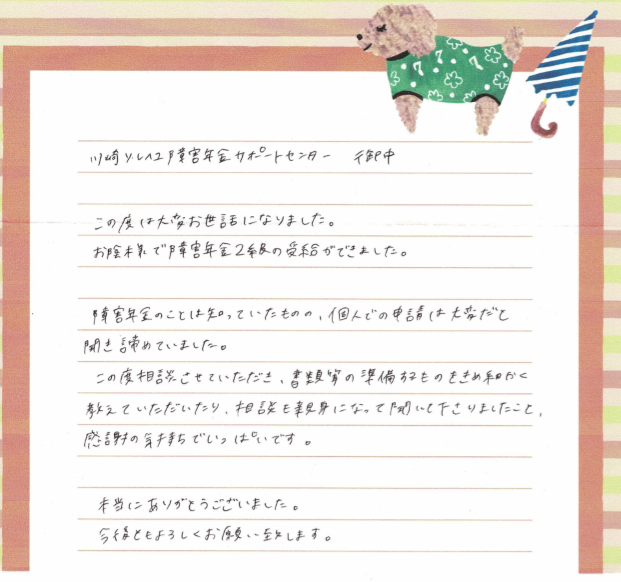 川崎ソレイユ障害年金サポートセンター 御中
この度は大変お世話になりました。
お陰様で障害年金2級の受給ができました。
障害年金のことは知っていたものの、個人での申請は大変だと
聞き諦めていました。
この度相談させていただき、書類等の準備するものをきめ細かく
教えていただいたり、相談も親身になって聞いて下さりましたこと、
感謝の気持ちでいっぱいです。
本当にありがとうございました。
今後ともよろしくお願い致します。